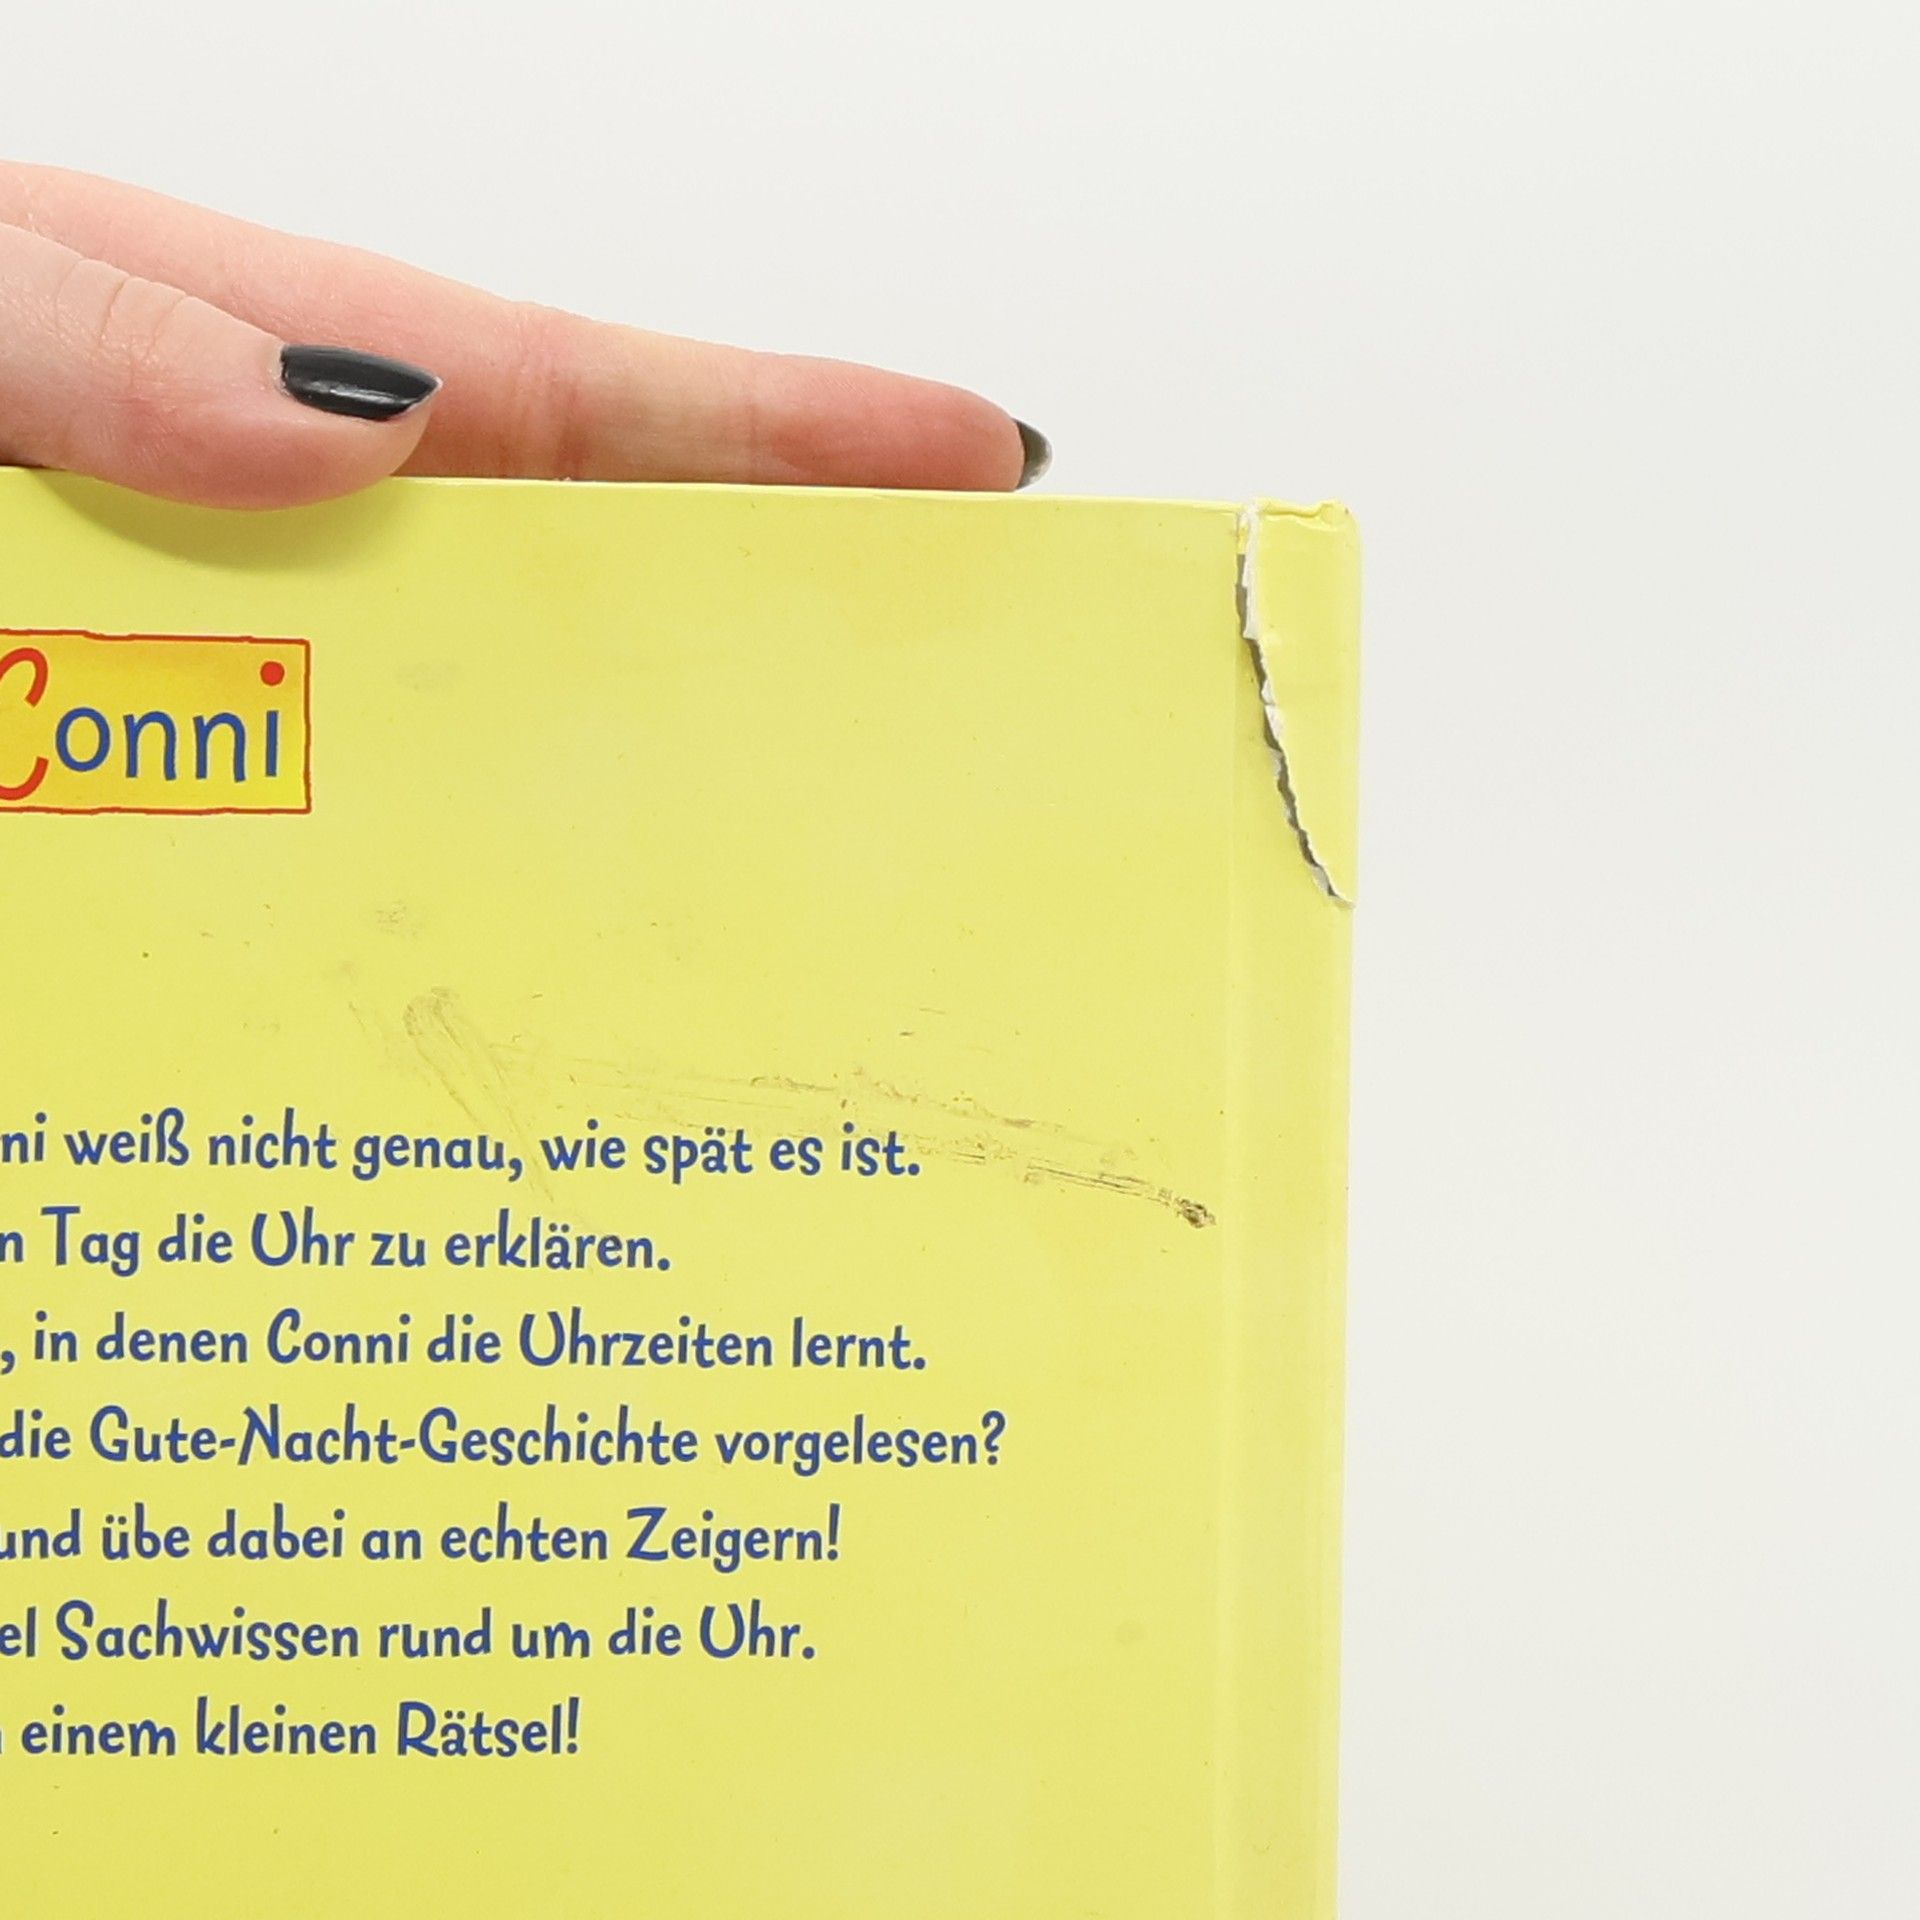 Conni
weiß nicht genau, wie spät es ist.
Tag die Uhr zu erklären.
, in denen Conni die Uhrzeiten lernt.
die Gute-Nacht-Geschichte vorgelesen?
und übe dabei an echten Zeigern!
Sachwissen rund um die Uhr.
einem kleinen Rätsel!